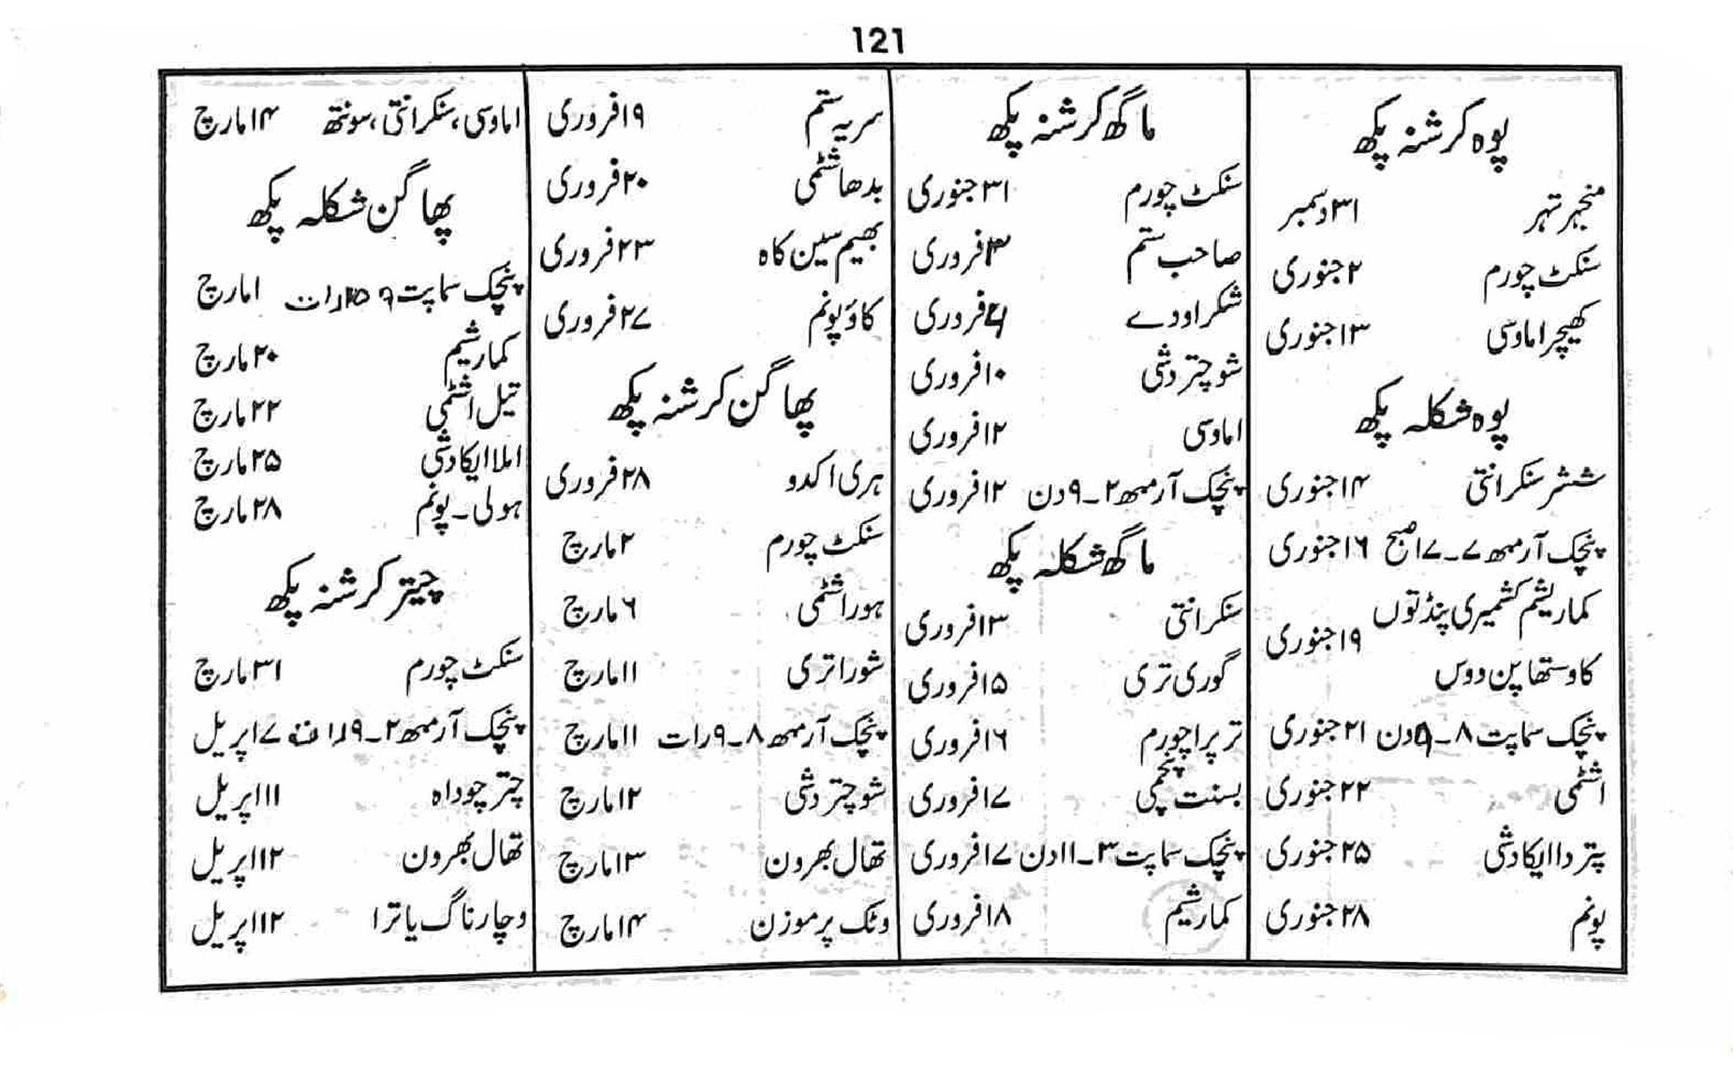 121
پوہ کرشنہ پکھ
منجہر تہر ۳۱ دسمبر
سنکٹ چورم ۲ جنوری
کھیچر اماوسی ۱۳ جنوری
پوہ شکلہ پکھ
ششر سنکرانتی ۱۴ جنوری
پنچک آرمبھ ۷-۱۷ صبح ۱۶ جنوری
کماریشم کشمیری پنڈتوں
۱۹ جنوری
کاوستھاپن دوس
پنچک سماپت ۸-۹ دن ۲۱ جنوری
اشٹمی ۲۲ جنوری
پتردا ایکادشی ۲۵ جنوری
پونم ۲۸ جنوری
ماگھ کرشنہ پکھ
سنکٹ چورم ۳۱ جنوری
صاحب ستم ۴ فروری
شکر اودے فروری
شوچتردشی ۱۰ فروری
اماوسی ۱۲ فروری
پنچک آرمبھ ۲-۹ دن ۱۲ فروری
ماگھ شکلہ پکھ
سنکرانتی ۱۳ فروری
گوری تری ۱۵ فروری
ترپرا چورم ۱۶ فروری
بسنت پنچمی ۱۷ فروری
پنچک سماپت ۳-۱۱ دن ۱۷ فروری
کمارشیم ۱۸ فروری
سریہ ستم ۱۹ فروری
بدھاشٹمی ۲۰ فروری
بھیم سین کاہ ۲۳ فروری
کاؤ پونم ۲۷ فروری
پھاگن کرشنہ پکھ
ہری اکدو ۲۸ فروری
سنکٹ چورم ۲ مارچ
ہوراشٹمی ۶ مارچ
شوراتری ۱۱ مارچ
پنچک آرمبھ ۸-۹ رات ۱۱ مارچ
شوچتردشی ۱۲ مارچ
تھال بھرون ۱۳ مارچ
وٹک پرموزن ۱۴ مارچ
اماوسی، سنکرانتی، سونتھ ۱۴ مارچ
پھاگن شکلہ پکھ
پنچک سماپت رات مارچ
کمارشیم ۲۰ مارچ
تیل اشٹمی ۲۲ مارچ
املا ایکادشی ۲۵ مارچ
ہولی۔ پونم ۲۸ مارچ
چیتر کرشنہ پکھ
سنکٹ چورم ۳۱ مارچ
پنچک آرمبھ ۲-۹ رات ۷ اپریل
چتر چوداہ ۱۱ اپریل
تھال بھرون ۱۲ اپریل
وچارناگ یاترا ۱۲ اپریل